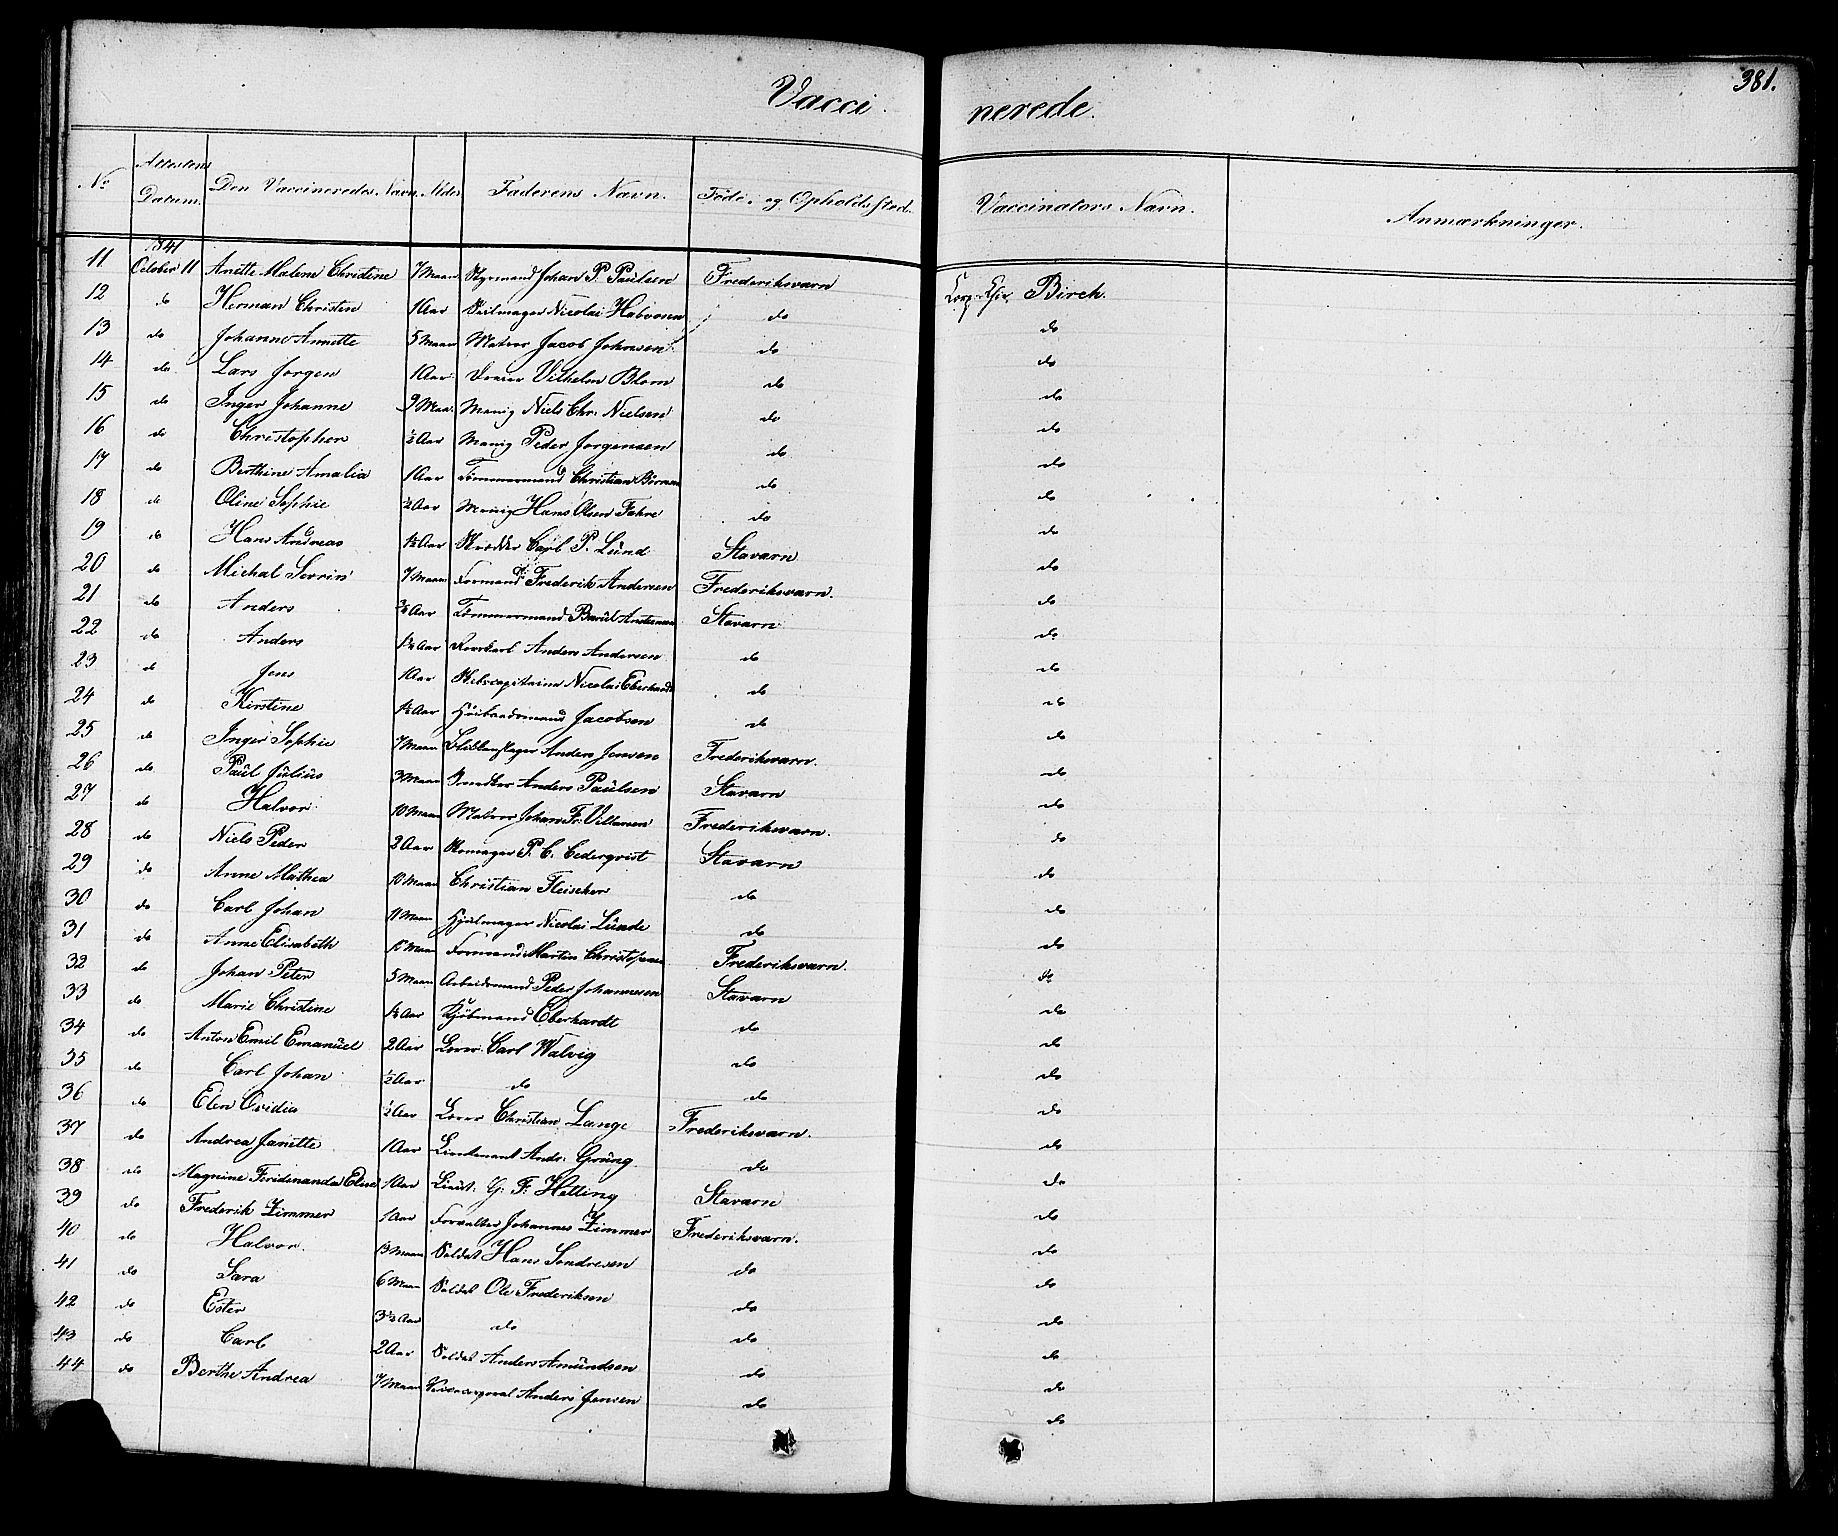 Vaccinerede.
381.
No Attestens Datum. Den Vaccineredes Navn. Alder Faderens Navn. Føde- og Opholds sted. Vaccinators Navn. Anmærkninger.
1841
11 October 11 Anette Malene Christine 7 Maan Styrmand Johan P. Paulsen Frederiksværn Corp. Chir. Birch.
12 do Herman Christen 1 Aar Seilmager Nicolai Halvorsen do do
13 do Johanne Annette 5 Maan Matros Jacob Johnsen do do
14 do Lars Jørgen 1 Aar Vilhelm Blom do do
15 do Inger Johanne 9 Maa. Menig Niels Chr. Nielsen do do
16 do Christopher ½ Aar Menig Peder Jørgensen do do
17 do Berthine Amalia 1 Aar Tømmermand Christian do do
18 do Oline Sophie ½ Aar Menig Hans Olsen Fahre do do
19 do Hans Andreas 1½ Aar Skrædder Carl P. Lund Staværn do
20 do Michal Sørrin 7 Maan Formand Frederik Andersen Frederiksværn. do
21 do Anders Aar Tømmermand Andersen Staværn do
22 do Anders 1½ Aar Anders Andersen do do
23 do Jens 1 Aar Skibscapitaine Nicolai Eberhardt do do
24 do Kirstine 1½ Aar Jacobsen do do
25 do Inger Sophie 7 Maan Anders Jensen Frederiksværn. do
26 do Paul Julius 3 Maan Anders Paulsen Staværn do
27 do Halvor 10 Maan Matros Johan Fr. Villumsen Frederiksværn. do
28 do Niels Peder 2 Aar Skomager P. C. Cederqvist Staværn do
29 do Anne Mathea 10 Maan Christian Fleischer do do
30 do Carl Johan 11 Maan Hjulmager Nicolai Lunde do do
31 do Anne Elisabeth Maan Formand Martin Christophersen Frederiksværn. do
32 do Johan Peter 5 Maan Arbeidsmand Peder Johannesen Staværn do
33 do Marie Christine 1½ Aar Kjøbmand Eberhardt do do
34 do Anton Emil Emanuel 2 Aar Lærer Carl Walvig do do
35 do Carl Johan ½ Aar do do do
36 do Elen Ovidia ½ Aar Lærer Christian Lange Frederiksværn. do
37 do Andrea Janette 1 Aar Lieutenant Andr. Grüng do do
38 do Magnine Feridinanda Elise 1 Aar Lieut. G. F. Helling Staværn do
39 do Frederik Zimmer 1 Aar Forvalter Johannes Zimmer Frederiksværn. do
40 do Halvor. 13 Maan Soldat Hans Sondresen do do
41 do Sara 6 Maan Soldat Ole Frederiksen do do
42 do Ester 3½ Aar do do do
43 do Carl 2 Aar Soldat Anders Amundsen do do
44 do Berthe Andrea 7 Maan Vicecorporal Anders Jensen do do